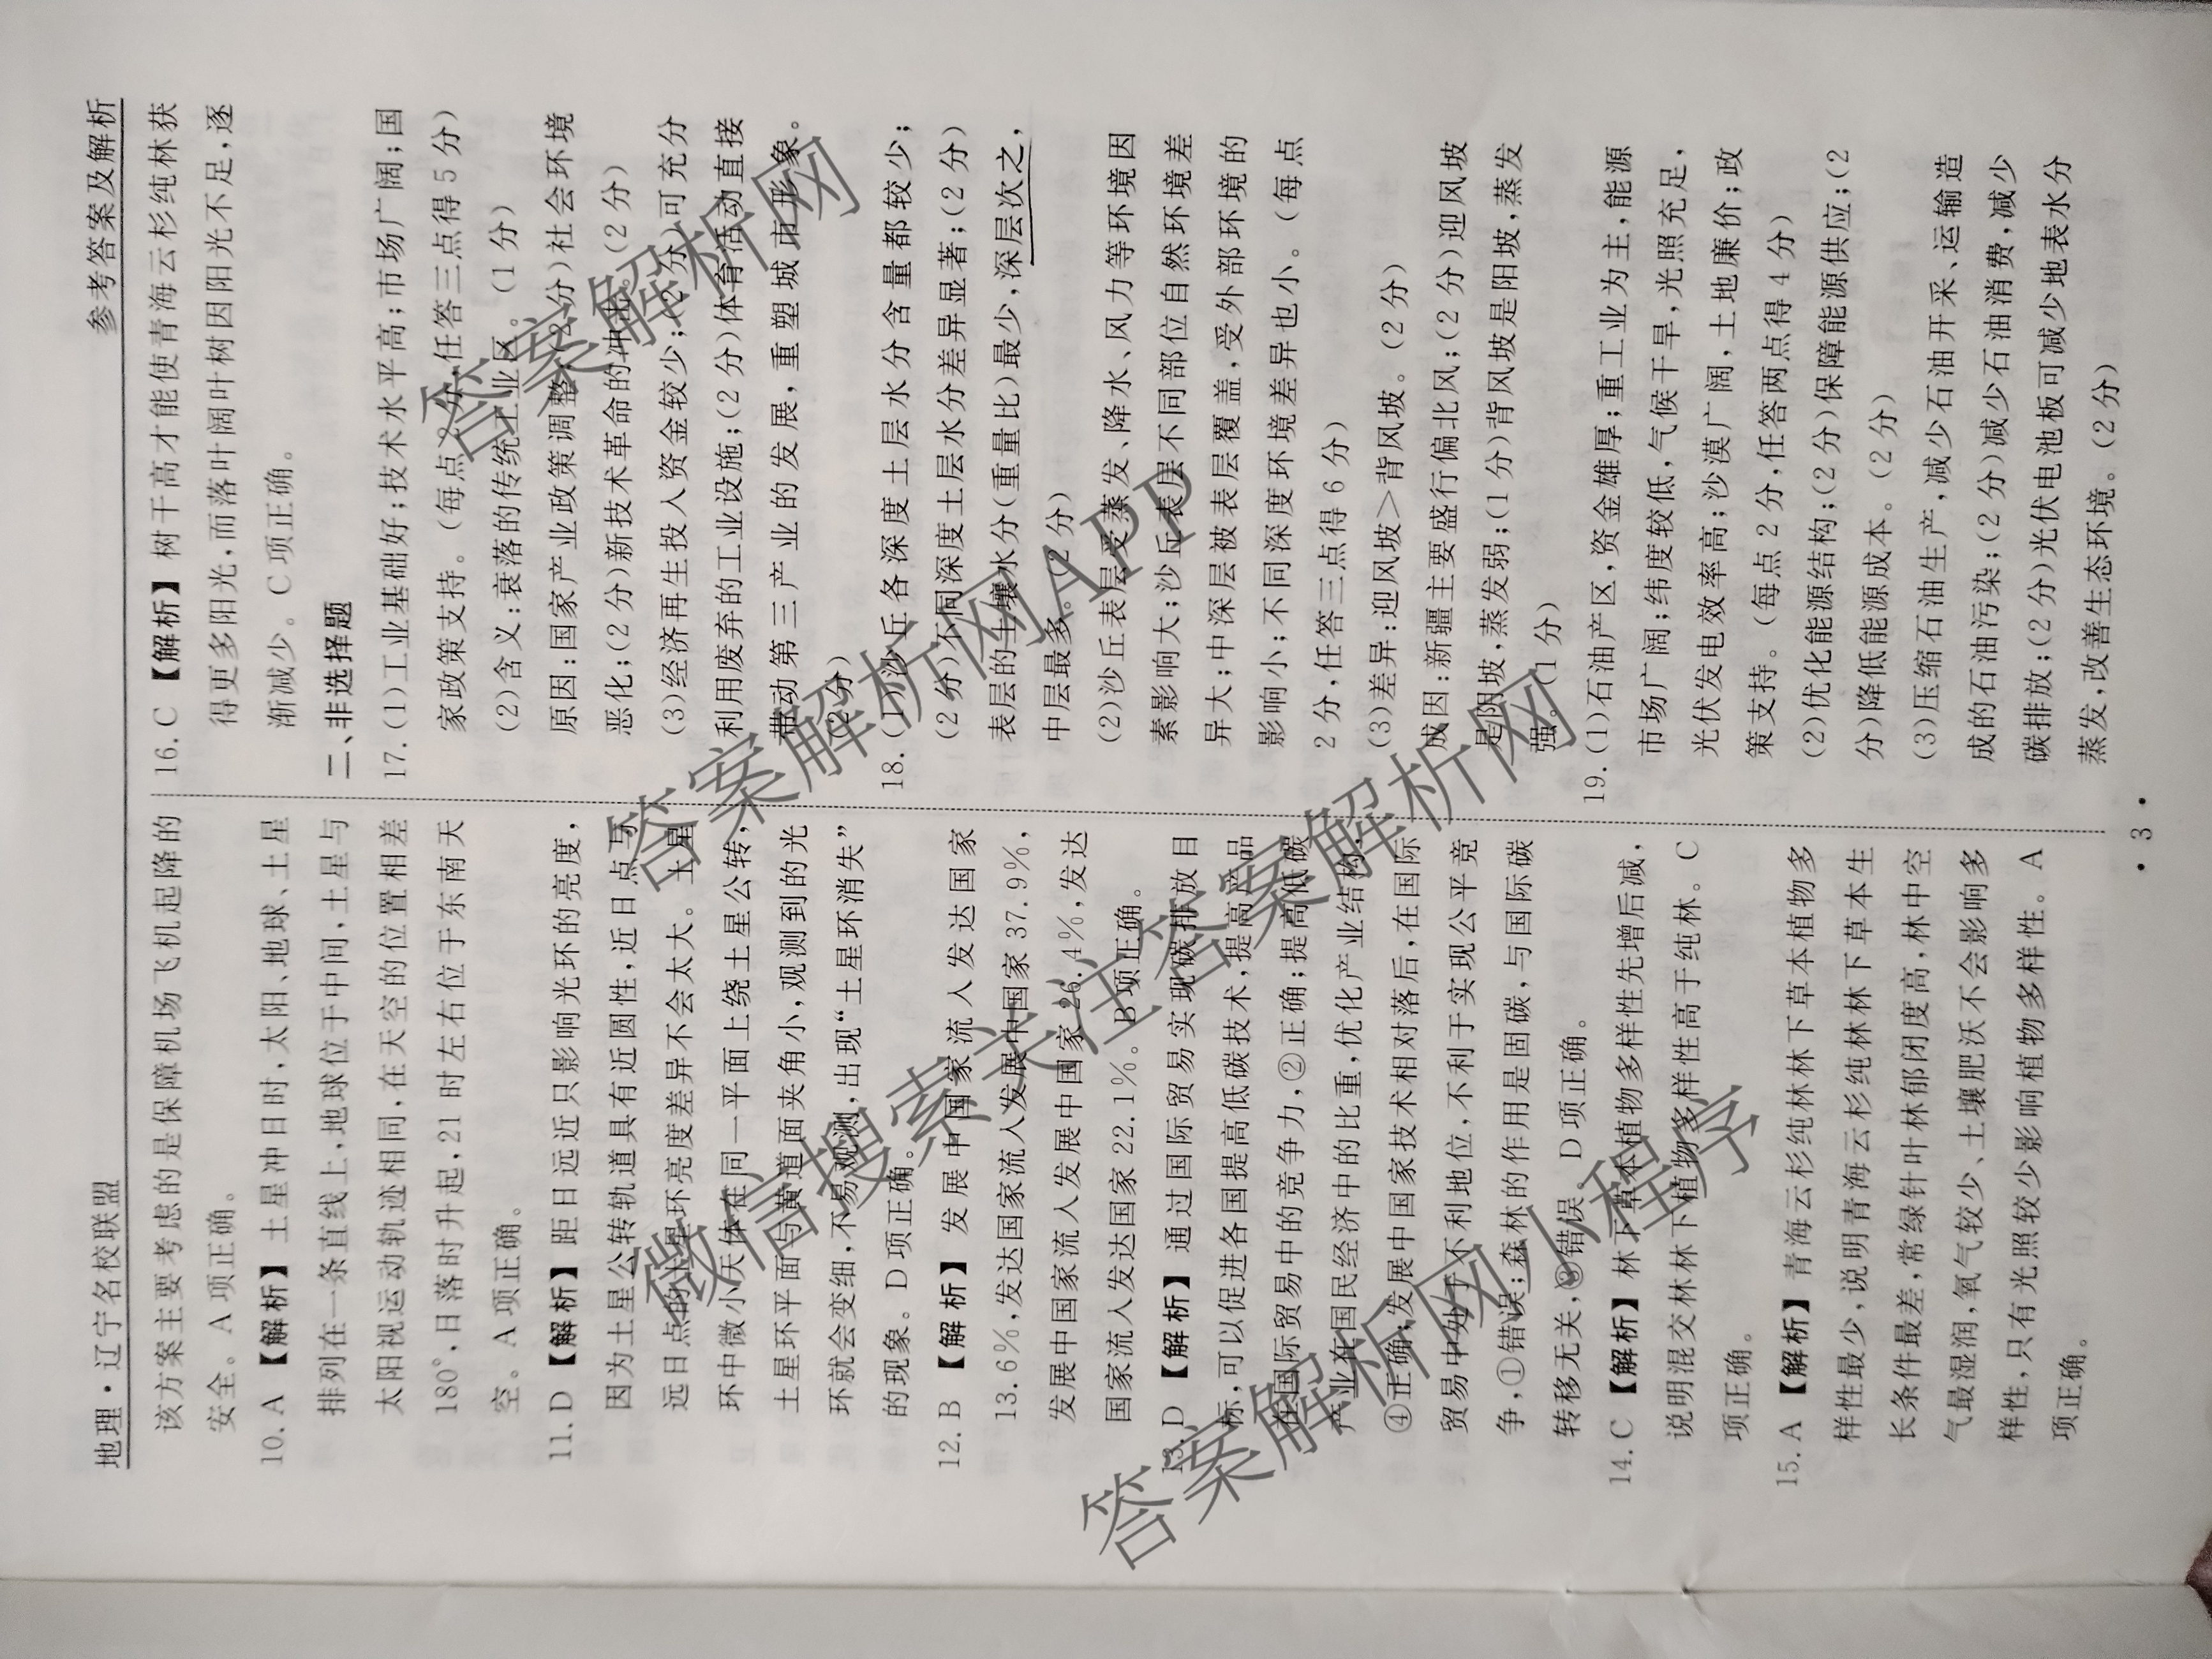 地理·辽宁名校联盟
参考答案及解析
该方案主要考虑的是保障机场飞机起降的
安全。A项正确。
10.A 【解析】土星冲日时,太阳、地球、土星
排列在一条直线上,地球位于中间,土星与
太阳视运动轨迹相同,在天空的位置相差
180°,日落时升起,21时左右位于东南天
空。A项正确。
11.D 【解析】距日远近只影响光环的亮度,
因为土星公转轨道具有近圆性,近日点与
远日点的土星环亮度差异不会太大。土星
环中微小天体在同一平面上绕土星公转,
土星环平面与黄道面夹角小,观测到的光
环就会变细,不易观测,出现“土星环消失”
的现象。D项正确。
12.B 【解析】发展中国家流入发达国家
13.6%,发达国家流入发展中国家37.9%,
发展中国家流入发展中国家26.4%,发达
国家流入发达国家22.1%。B项正确。
13.D 【解析】通过国际贸易实现碳排放目
标,可以促进各国提高低碳技术,提高产品
在国际贸易中的竞争力,②正确;提高低碳
产业在国民经济中的比重,优化产业结构,
④正确;发展中国家技术相对落后,在国际
贸易中处于不利地位,不利于实现公平竞
争,①错误;森林的作用是固碳,与国际碳
转移无关,③错误。D项正确。
14.C 【解析】林下草本植物多样性先增后减,
说明混交林林下植物多样性高于纯林。C
项正确。
15.A 【解析】青海云杉纯林林下草本植物多
样性最少,说明青海云杉纯林林下草本生
长条件最差,常绿针叶林郁闭度高,林中空
气最湿润,氧气较少、土壤肥沃不会影响多
样性,只有光照较少影响植物多样性。A
项正确。
16.C 【解析】树干高才能使青海云杉纯林获
得更多阳光,而落叶阔叶树因阳光不足,逐
渐减少。C项正确。
二、非选择题
17.(1)工业基础好;技术水平高;市场广阔;国
家政策支持。(每点2分,任答三点得5分)
(2)含义:衰落的传统工业区。(1分)
原因:国家产业政策调整;(2分)社会环境
恶化;(2分)新技术革命的冲击。(2分)
(3)经济再生投入资金较少;(2分)可充分
利用废弃的工业设施;(2分)体育活动直接
带动第三产业的发展,重塑城市形象。
(2分)
18.(1)沙丘各深度土层水分含量都较少;
(2分)不同深度土层水分差异显著;(2分)
表层的土壤水分(重量比)最少,深层次之,
中层最多。(2分)
(2)沙丘表层受蒸发、降水、风力等环境因
素影响大;沙丘表层不同部位自然环境差
异大;中深层被表层覆盖,受外部环境的
影响小;不同深度环境差异也小。(每点
2分,任答三点得6分)
(3)差异:迎风坡>背风坡。(2分)
成因:新疆主要盛行偏北风;(2分)迎风坡
是阴坡,蒸发弱;(1分)背风坡是阳坡,蒸发
强。(1分)
19.(1)石油产区,资金雄厚;重工业为主,能源
市场广阔;纬度较低,气候干旱,光照充足,
光伏发电效率高;沙漠广阔,土地廉价;政
策支持。(每点2分,任答两点得4分)
(2)优化能源结构;(2分)保障能源供应;(2
分)降低能源成本。(2分)
(3)压缩石油生产,减少石油开采、运输造
成的石油污染;(2分)减少石油消费,减少
碳排放;(2分)光伏电池板可减少地表水分
蒸发,改善生态环境。(2分)
·3·
答案解析网
答案解析网APP
微信搜索关注答案解析网
答案解析网小程序